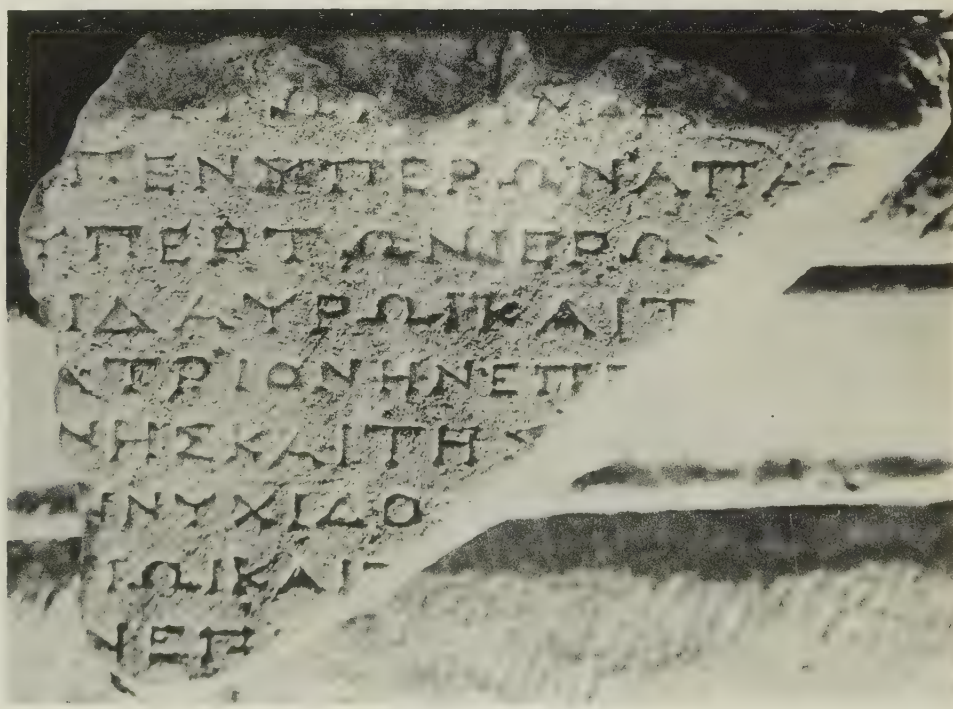 ΠΕΝΥΠΕΡΩΝΑΠΑΓ
ΥΠΕΡΤΩΝΙΕΡΩΝ
ΙΔΑΥΡΩΙΚΑΙΤ
ΑΤΡΙΟΝΗΝΕΠΙ
ΝΗΣΚΑΙΤΗΣ
ΝΝΥΧΙΔΟ
ΙΩΙΚΑΙΓ
ΝΕΠ